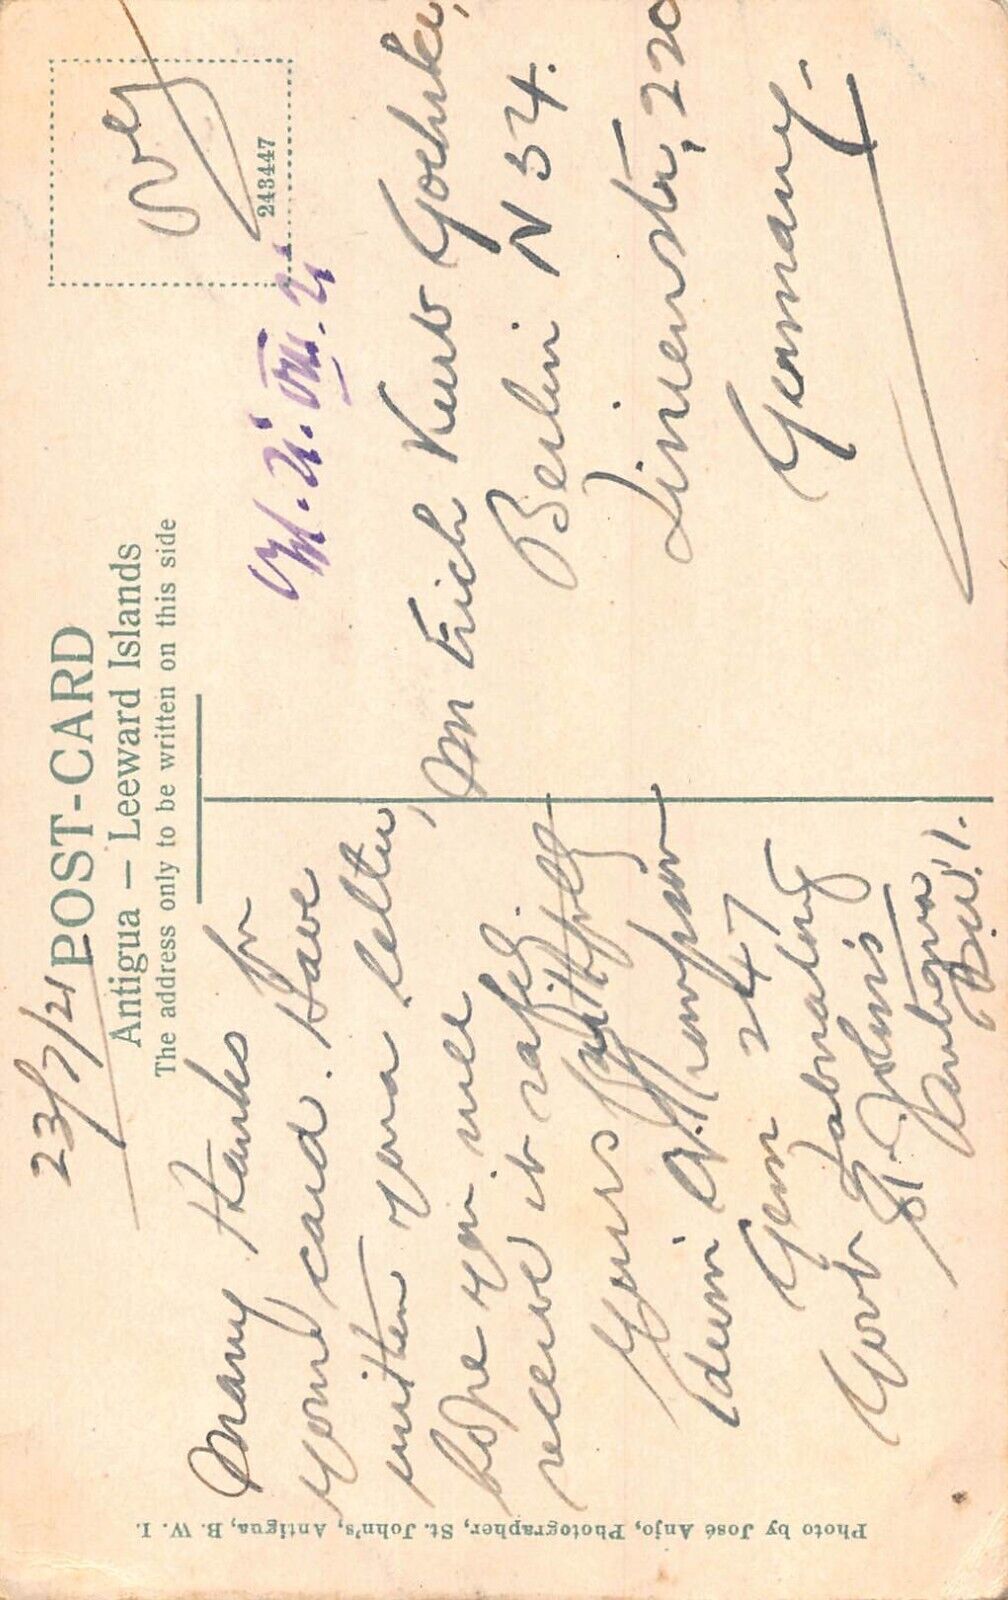 POST-CARD
Antigua — Leeward Islands
The address only to be written on this side
243447
23/7/21
Many thanks for
your card. Have
written you a letter,
hope you will
receive it safely.
Yours faithfully
Edwin A. Thompson
2 47
Gen
Govt
St. John's
Antigua
B.W.I.
Mr Erich Kurt Goehnke,
Berlin N 54.
Linienstr, 220
Germany.
Photo by José Anjo, Photographer, St. John's, Antigua, B. W. I.